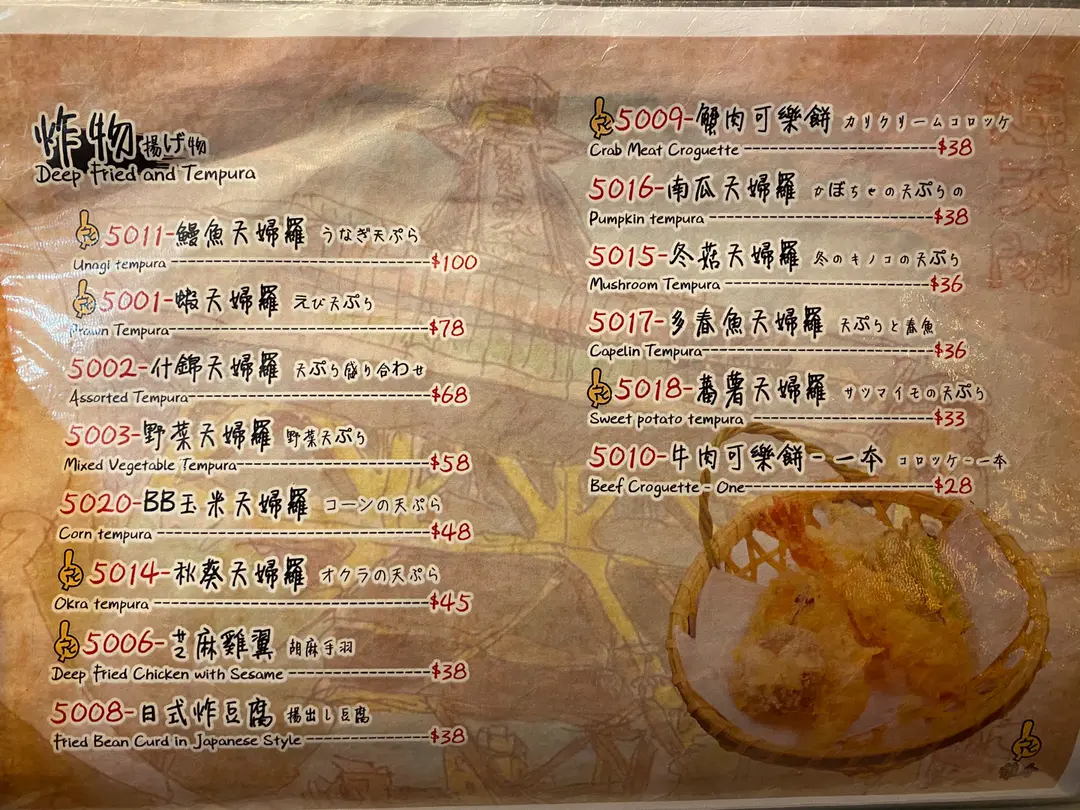 炸物 揚げ物
Deep Fried and Tempura
5011-鰻魚天婦羅 うなぎ天ぷら
Unagi tempura $100
5001-蝦天婦羅 えび天ぷら
Prawn Tempura $78
5002-什錦天婦羅 天ぷら盛り合わせ
Assorted Tempura $68
5003-野菜天婦羅 野菜天ぷら
Mixed Vegetable Tempura $58
5020-BB玉米天婦羅 コーンの天ぷら
Corn tempura $48
5014-秋葵天婦羅 オクラの天ぷら
Okra tempura $45
5006-芝麻雞翼 胡麻手羽
Deep Fried Chicken with Sesame $38
5008-日式炸豆腐 揚出し豆腐
Fried Bean Curd in Japanese Style $38
5009-蟹肉可樂餅 カリクリームコロッケ
Crab Meat Croguette $38
5016-南瓜天婦羅 かぼちゃの天ぷらの
Pumpkin tempura $38
5015-冬菇天婦羅 冬のキノコの天ぷら
Mushroom Tempura $36
5017-多春魚天婦羅 天ぷらと春魚
Capelin Tempura $36
5018-蕃薯天婦羅 サツマイモの天ぷら
Sweet potato tempura $33
5010-牛肉可樂餅-一本 コロッケ-一本
Beef Croguette - One $28